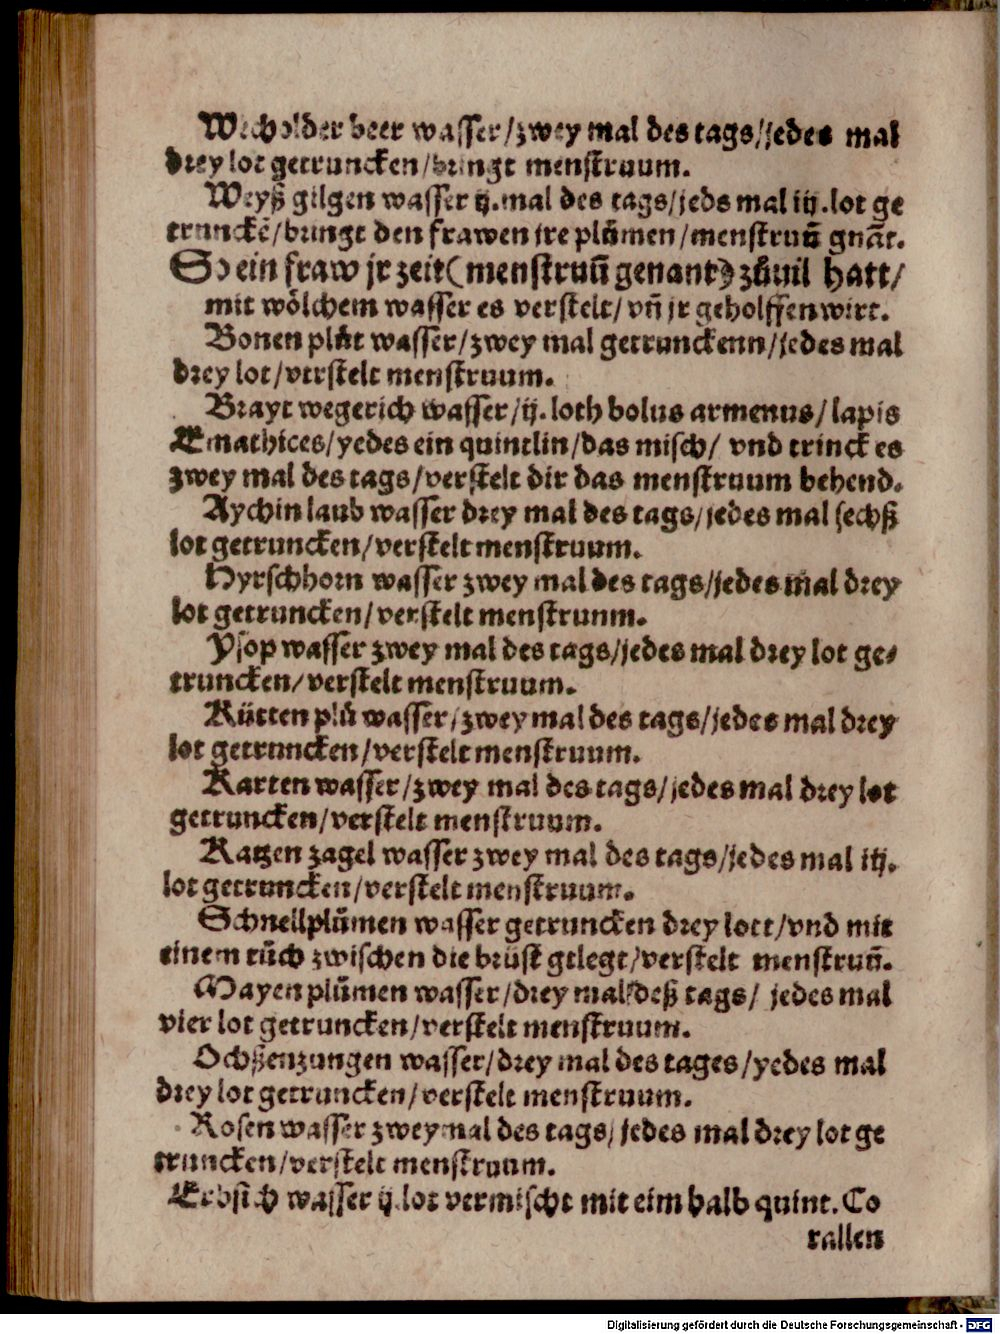 Wecholder beer wasser/zwey mal des tags/jedes mal
drey lot getruncken/bringt menstruum.
Weyß gilgen wasser ij.mal des tags/jeds mal iij.lot ge
trunckē/bringt den frawen jre plůmen/menstruū gnāt.
So ein fraw jr zeit(menstruū genant) zůuil hatt/
mit wölchem wasser es verstelt/ vñ jr geholffen wirt.
Bonen plůt wasser/zwey mal getrunckenn/jedes mal
drey lot/verstelt menstruum.
Brayt wegerich wasser/ij. loth bolus armenus/lapis
Emathices/yedes ein quintlin/das misch/ vnd trinck es
zwey mal des tags/verstelt dir das menstruum behend.
Aychin laub wasser drey mal des tags/jedes mal sechß
lot getruncken/verstelt menstruum.
Hyrschhorn wasser zwey mal des tags/jedes mal drey
lot getruncken/verstelt menstrunm.
Ysop wasser zwey mal des tags/jedes mal drey lot ge-
truncken/verstelt menstruum.
Kütten plů wasser/zwey mal des tags/jedes mal drey
lot getruncken/verstelt menstruum.
Karten wasser/zwey mal des tags/jedes mal drey lot
getruncken/verstelt menstruum.
Katzen zagel wasser zwey mal des tags/jedes mal iij.
lot getruncken/verstelt menstruum.
Schnellplůmen wasser getruncken drey lott/vnd mit
einem tůch zwischen die brüst gelegt/verstelt menstruū.
Mayen plůmen wasser/drey mal deß tags/ jedes mal
vier lot getruncken/verstelt menstruum.
Ochßenzungen wasser/drey mal des tages/yedes mal
drey lot getruncken/verstelt menstruum.
Rosen wasser zwey mal des tags/jedes mal drey lot ge
truncken/verstelt menstruum.
Erbsich wasser ij.lot vermischt mit eim halb quint.Co
rallen
Digitalisierung gefördert durch die Deutsche Forschungsgemeinschaft - DFG